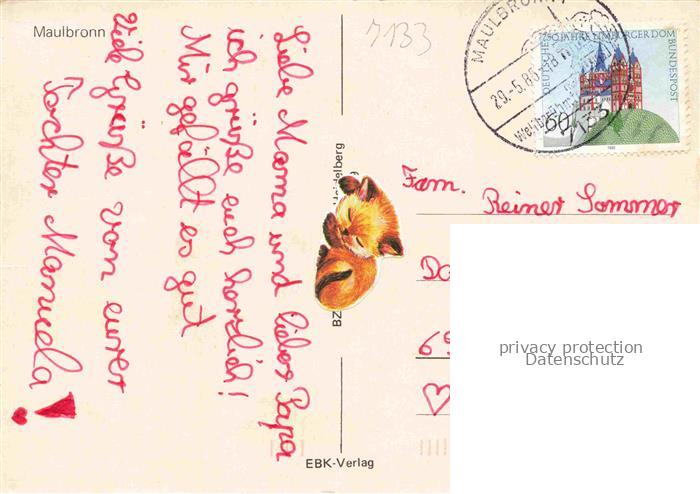 Maulbronn
7133
Liebe Mama und lieber Papa
ich grüße euch herzlich!
Mir gefällt es gut
Viele Grüße von eurer
Tochter Manuela!
MAULBRONN
29.-5.86-18
DEUTSCHE BUNDESPOST
750 JAHRE LIMBURGER DOM
60
Heidelberg
BZ
EBK-Verlag
Fam.
Reiner Sommer
69
privacy protection
Datenschutz